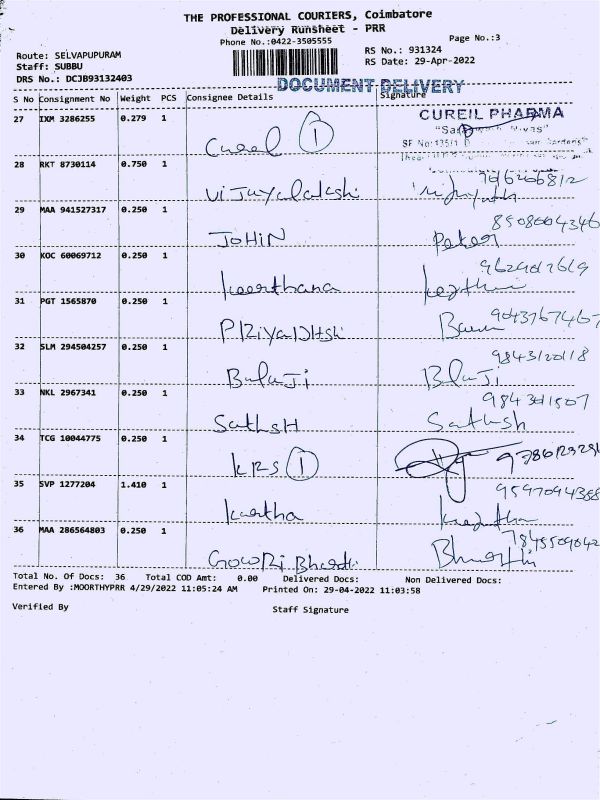 THE PROFESSIONAL COURIERS, Coimbatore
Delivery Runsheet - PRR
Phone No.:0422-3505555
Page No.:3
Route: SELVAPUPURAM
RS No.: 931324
Staff: SUBBU
RS Date: 29-Apr-2022
DRS No.: DCJB93132403
DOCUMENT DELIVERY
S No Consignment No Weight PCS Consignee Details Signature
27 IXM 3286255 0.279 1
CUREIL PHARMA
Cureil 1
28 RKT 8730114 0.750 1
Vijayalakshi
29 MAA 941527317 0.250 1 8508604346
JOHIN Peter
30 KOC 60069712 0.250 1
keerthana
31 PGT 1565870 0.250 1
PRiyaDHshi
32 SLM 294504257 0.250 1 9843120118
BalaJi BalaJi
33 NKL 2967341 0.250 1
SathsH Sathsh
34 TCG 10044775 0.250 1
KRS 1
35 SVP 1277204 1.410 1 9597094388
36 MAA 286564803 0.250 1 7845509042
GowRi Bharathi Bharathi
Total No. Of Docs: 36 Total COD Amt: 0.00 Delivered Docs: Non Delivered Docs:
Entered By :MOORTHYPRR 4/29/2022 11:05:24 AM Printed On: 29-04-2022 11:03:58
Verified By Staff Signature